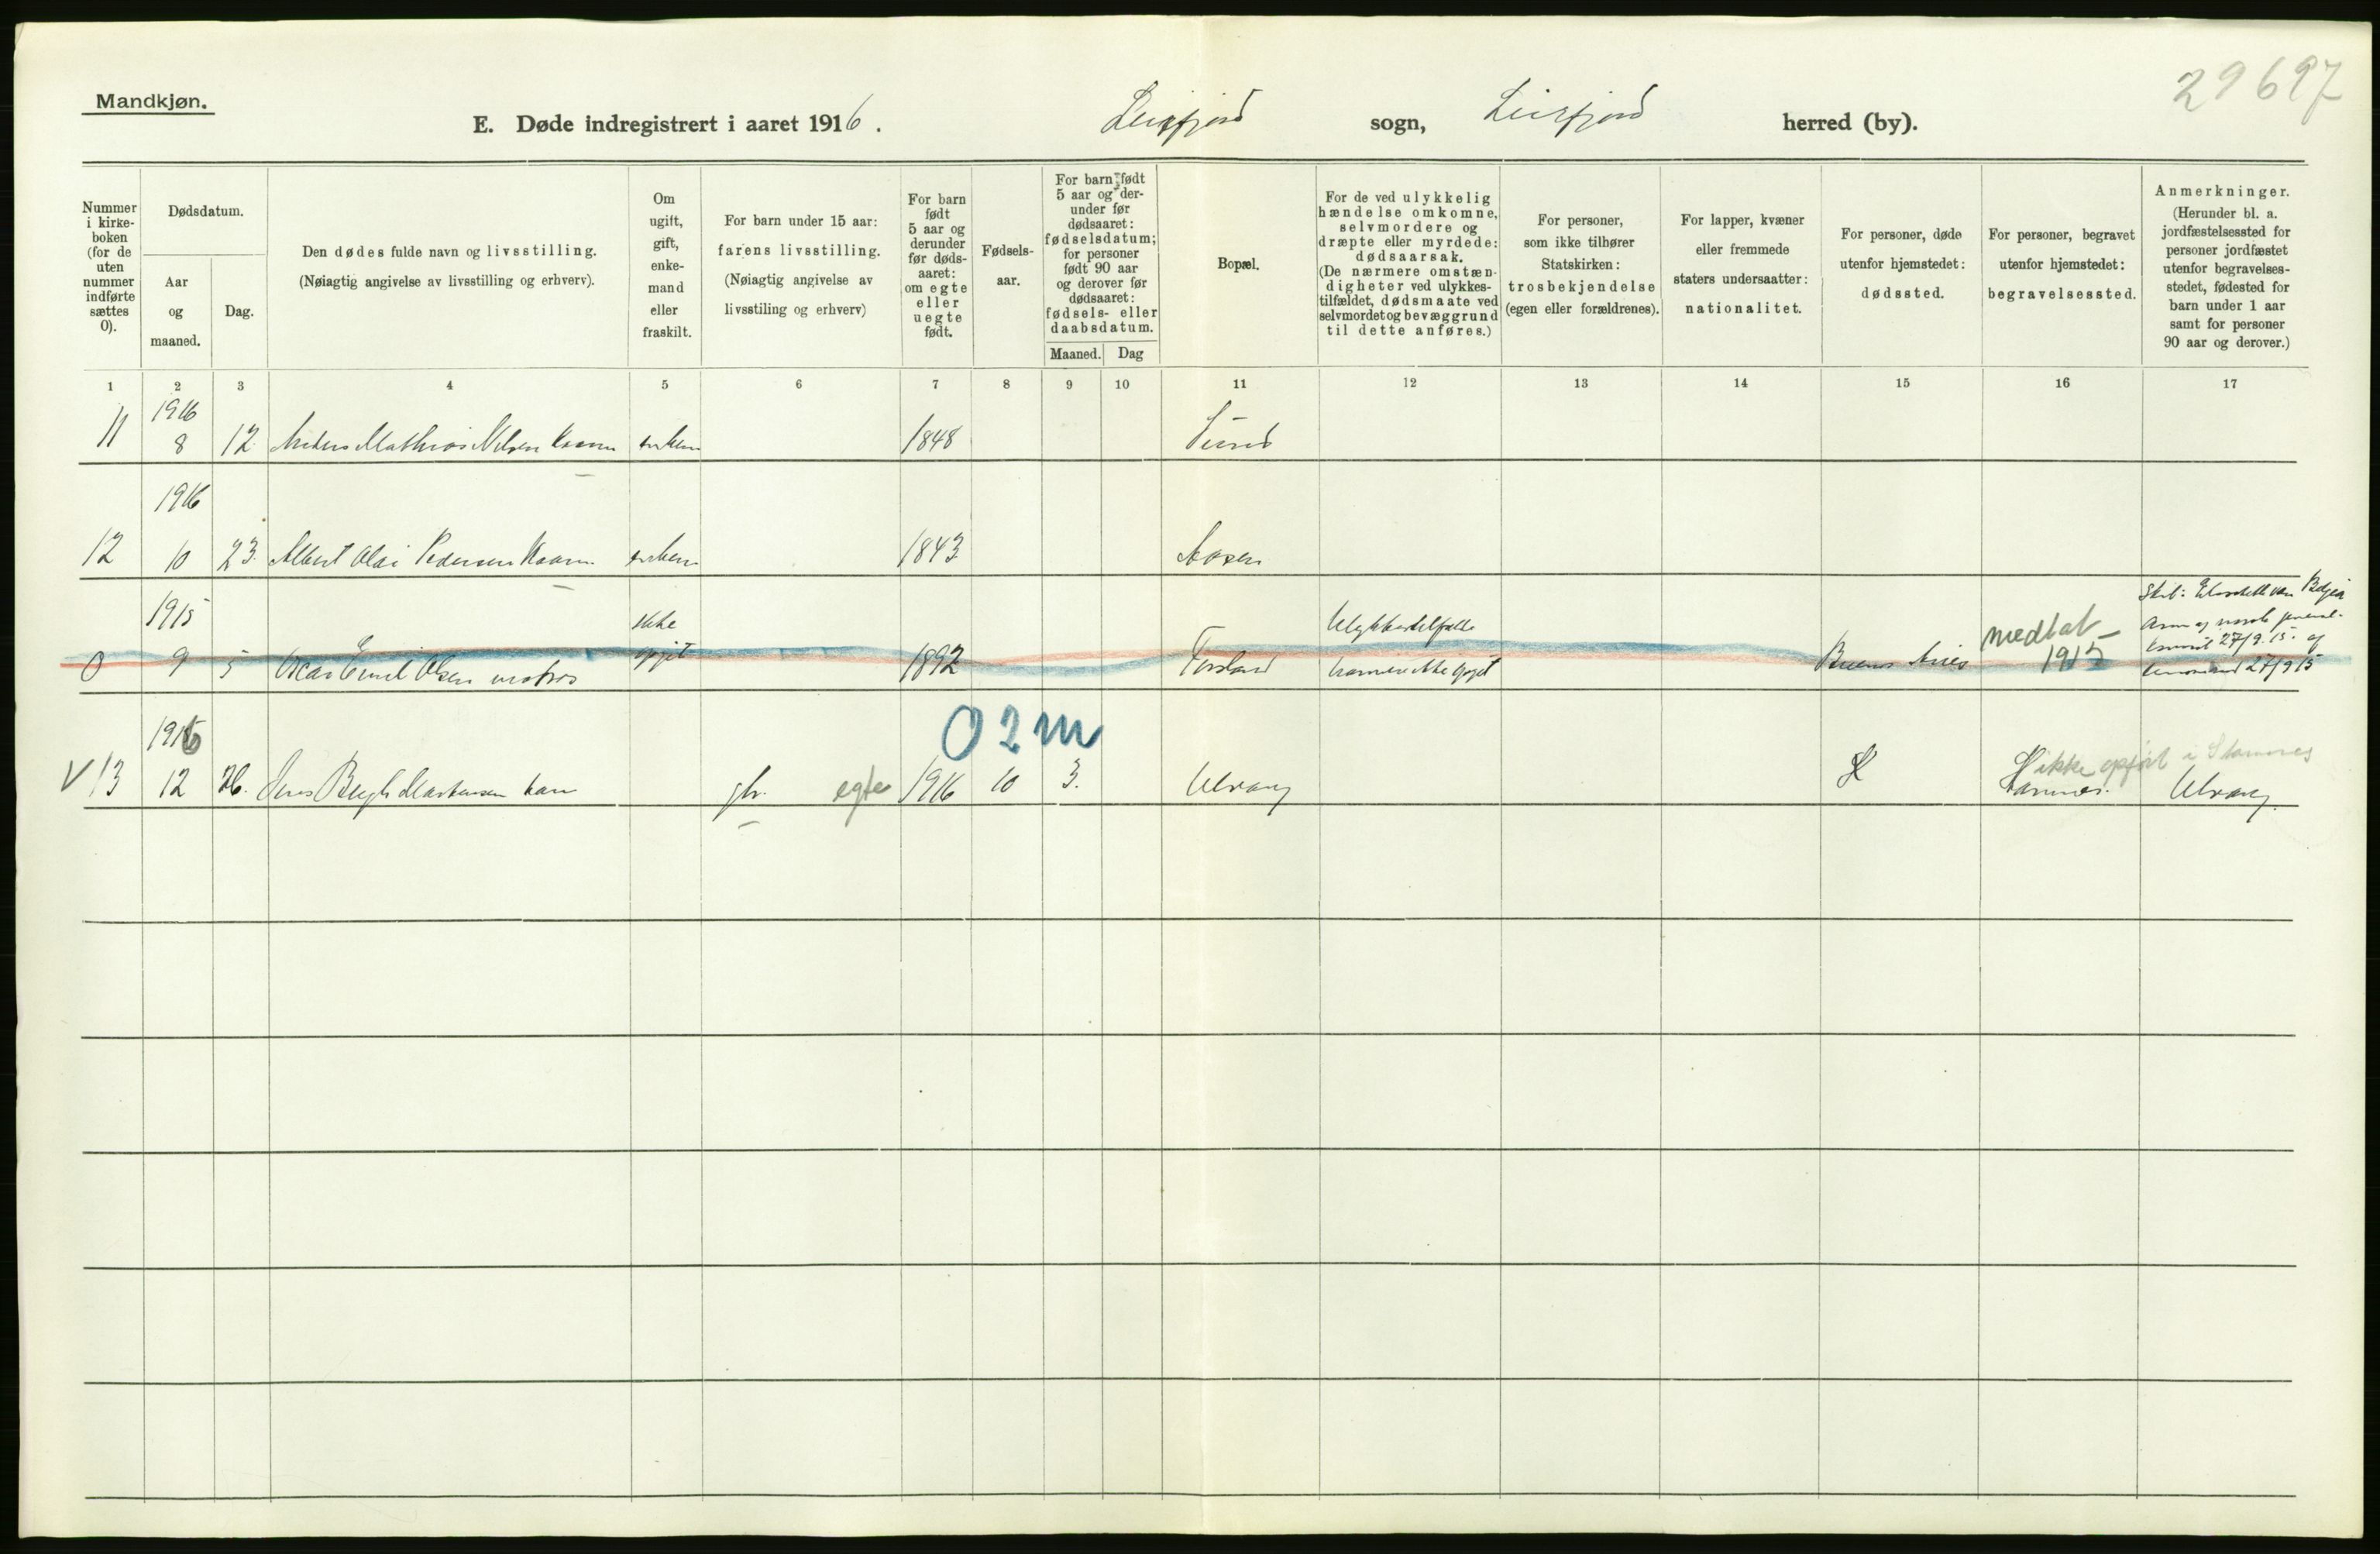 29697
Mandkjøn.
E. Døde indregistrert i aaret 1916. Leirfjord sogn, Leirfjord herred (by).
Nummer
i kirke-
boken
(for de
uten
nummer
indførte
sættes
0).
Dødsdatum.
Aar
og
maaned.
Dag.
Den dødes fulde navn og livsstilling.
(Nøiagtig angivelse av livsstilling og erhverv).
Om
ugift,
gift,
enke-
mand
eller
fraskilt.
For barn under 15 aar:
farens livsstilling.
(Nøiagtig angivelse av
livsstiling og erhverv)
For barn
født
5 aar og
derunder
før døds-
aaret:
om egte
eller
uegte
født.
Fødsels-
aar.
For barn født
5 aar og der-
under før
dødsaaret:
fødselsdatum;
for personer
født 90 aar
og derover før
dødsaaret:
fødsels- eller
daabsdatum.
Maaned. Dag
Bopæl.
For de ved ulykkelig
hændelse omkomne,
selvmordere og
dræpte eller myrdede:
dødsaarsak.
(De nærmere omstæn-
digheter ved ulykkes-
tilfældet, dødsmaate ved
selvmordet og bevæggrund
til dette anføres.)
For personer,
som ikke tilhører
Statskirken:
trosbekjendelse
(egen eller forældrenes).
For lapper, kvæner
eller fremmede
staters undersaatter:
nationalitet.
For personer, døde
utenfor hjemstedet:
dødssted.
For personer, begravet
utenfor hjemstedet:
begravelsessted.
Anmerkninger.
(Herunder bl. a.
jordfæstelsessted for
personer jordfæstet
utenfor begravelses-
stedet, fødested for
barn under 1 aar
samt for personer
90 aar og derover.)
1 2 3 4 5 6 7 8 9 10 11 12 13 14 15 16 17
1916
11 8 12 Anders Mathias Nilsen Kaarm enkem 1848 Sund
1916
12 10 23. Albert Olai Pedersen Kaarm enkem 1843 Aasen
1915 ikke Ulykkestilfælde medtat Skib:
0 9 5 Oscar Emil Olsen matros opgit 1892 Forsland ikke opgit Buenos Aires 1915 27/9.15. og
27/9 15
02m
1916 ikke opført i Stamnes
V 13 12 26. Jens Bergh Martensen barn gbr. egte 1916 10 3. Ulvang H Stamnes. Ulvang.